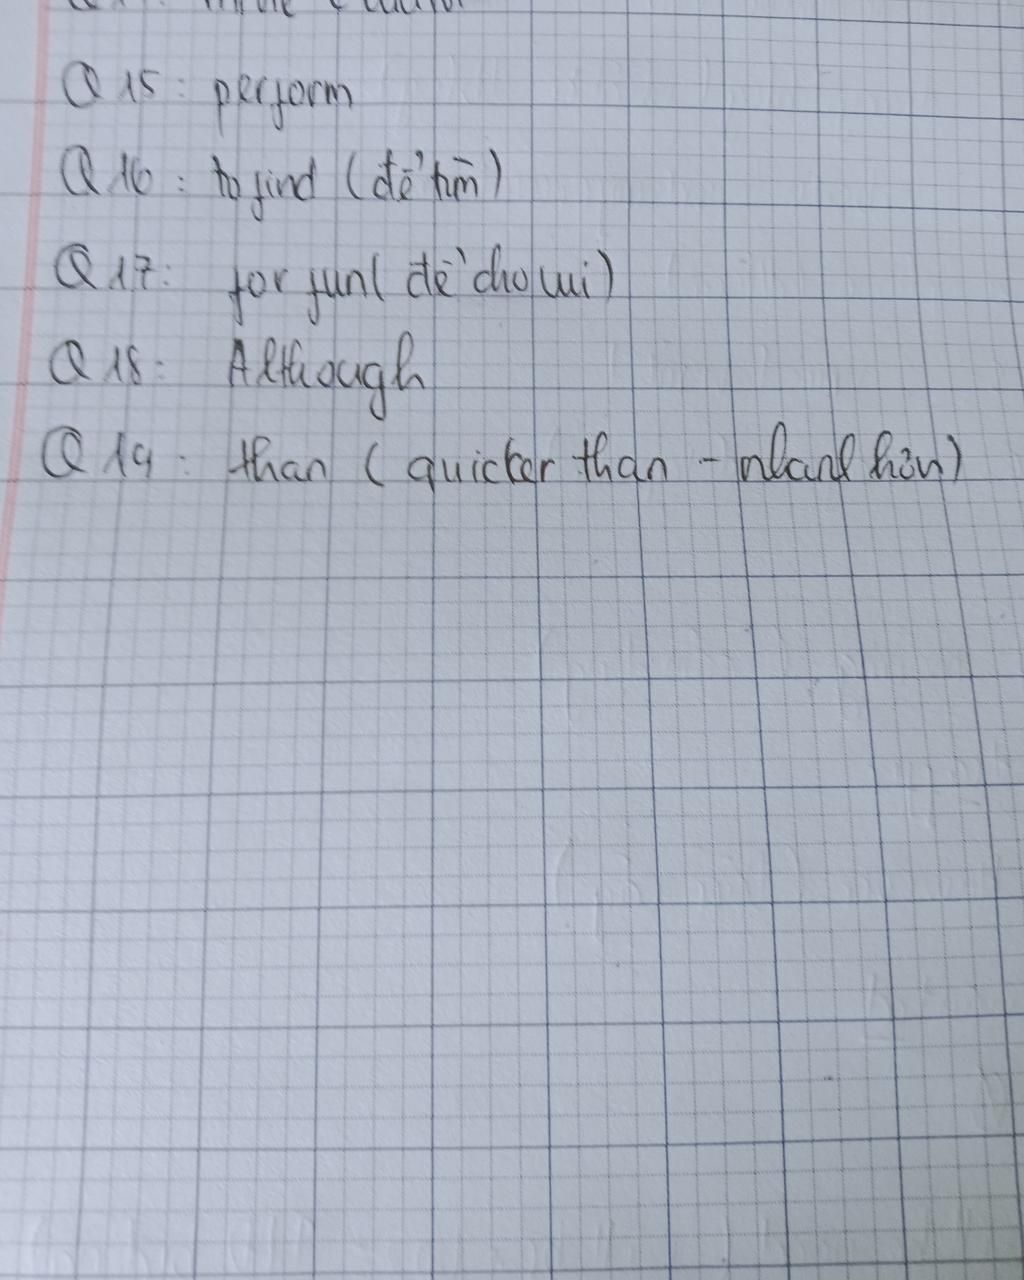 Q 15 : perform
Q 16 : to find (để tìm)
Q 17 : for fun ( để cho vui )
Q 18 : Although
Q 19 : than ( quicker than - nhanh hơn )